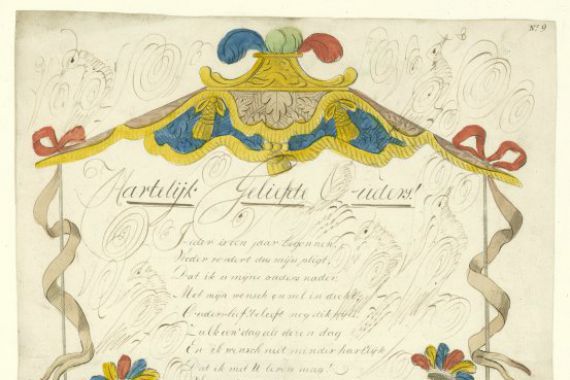 No 9
Hartelijk Geliefde Ouders!
Ieder eeren jaar begonnen,
Weder vordert dus mijn pligt,
Dat ik u mijne ouders nader,
Met mijn wensch en vel in dicht,
Ouderliefs beleeft nog dikwijls
Zulk een dag als dezen dag
En ik wensch niet minder hartlijk
Dat ik met U leven mag!